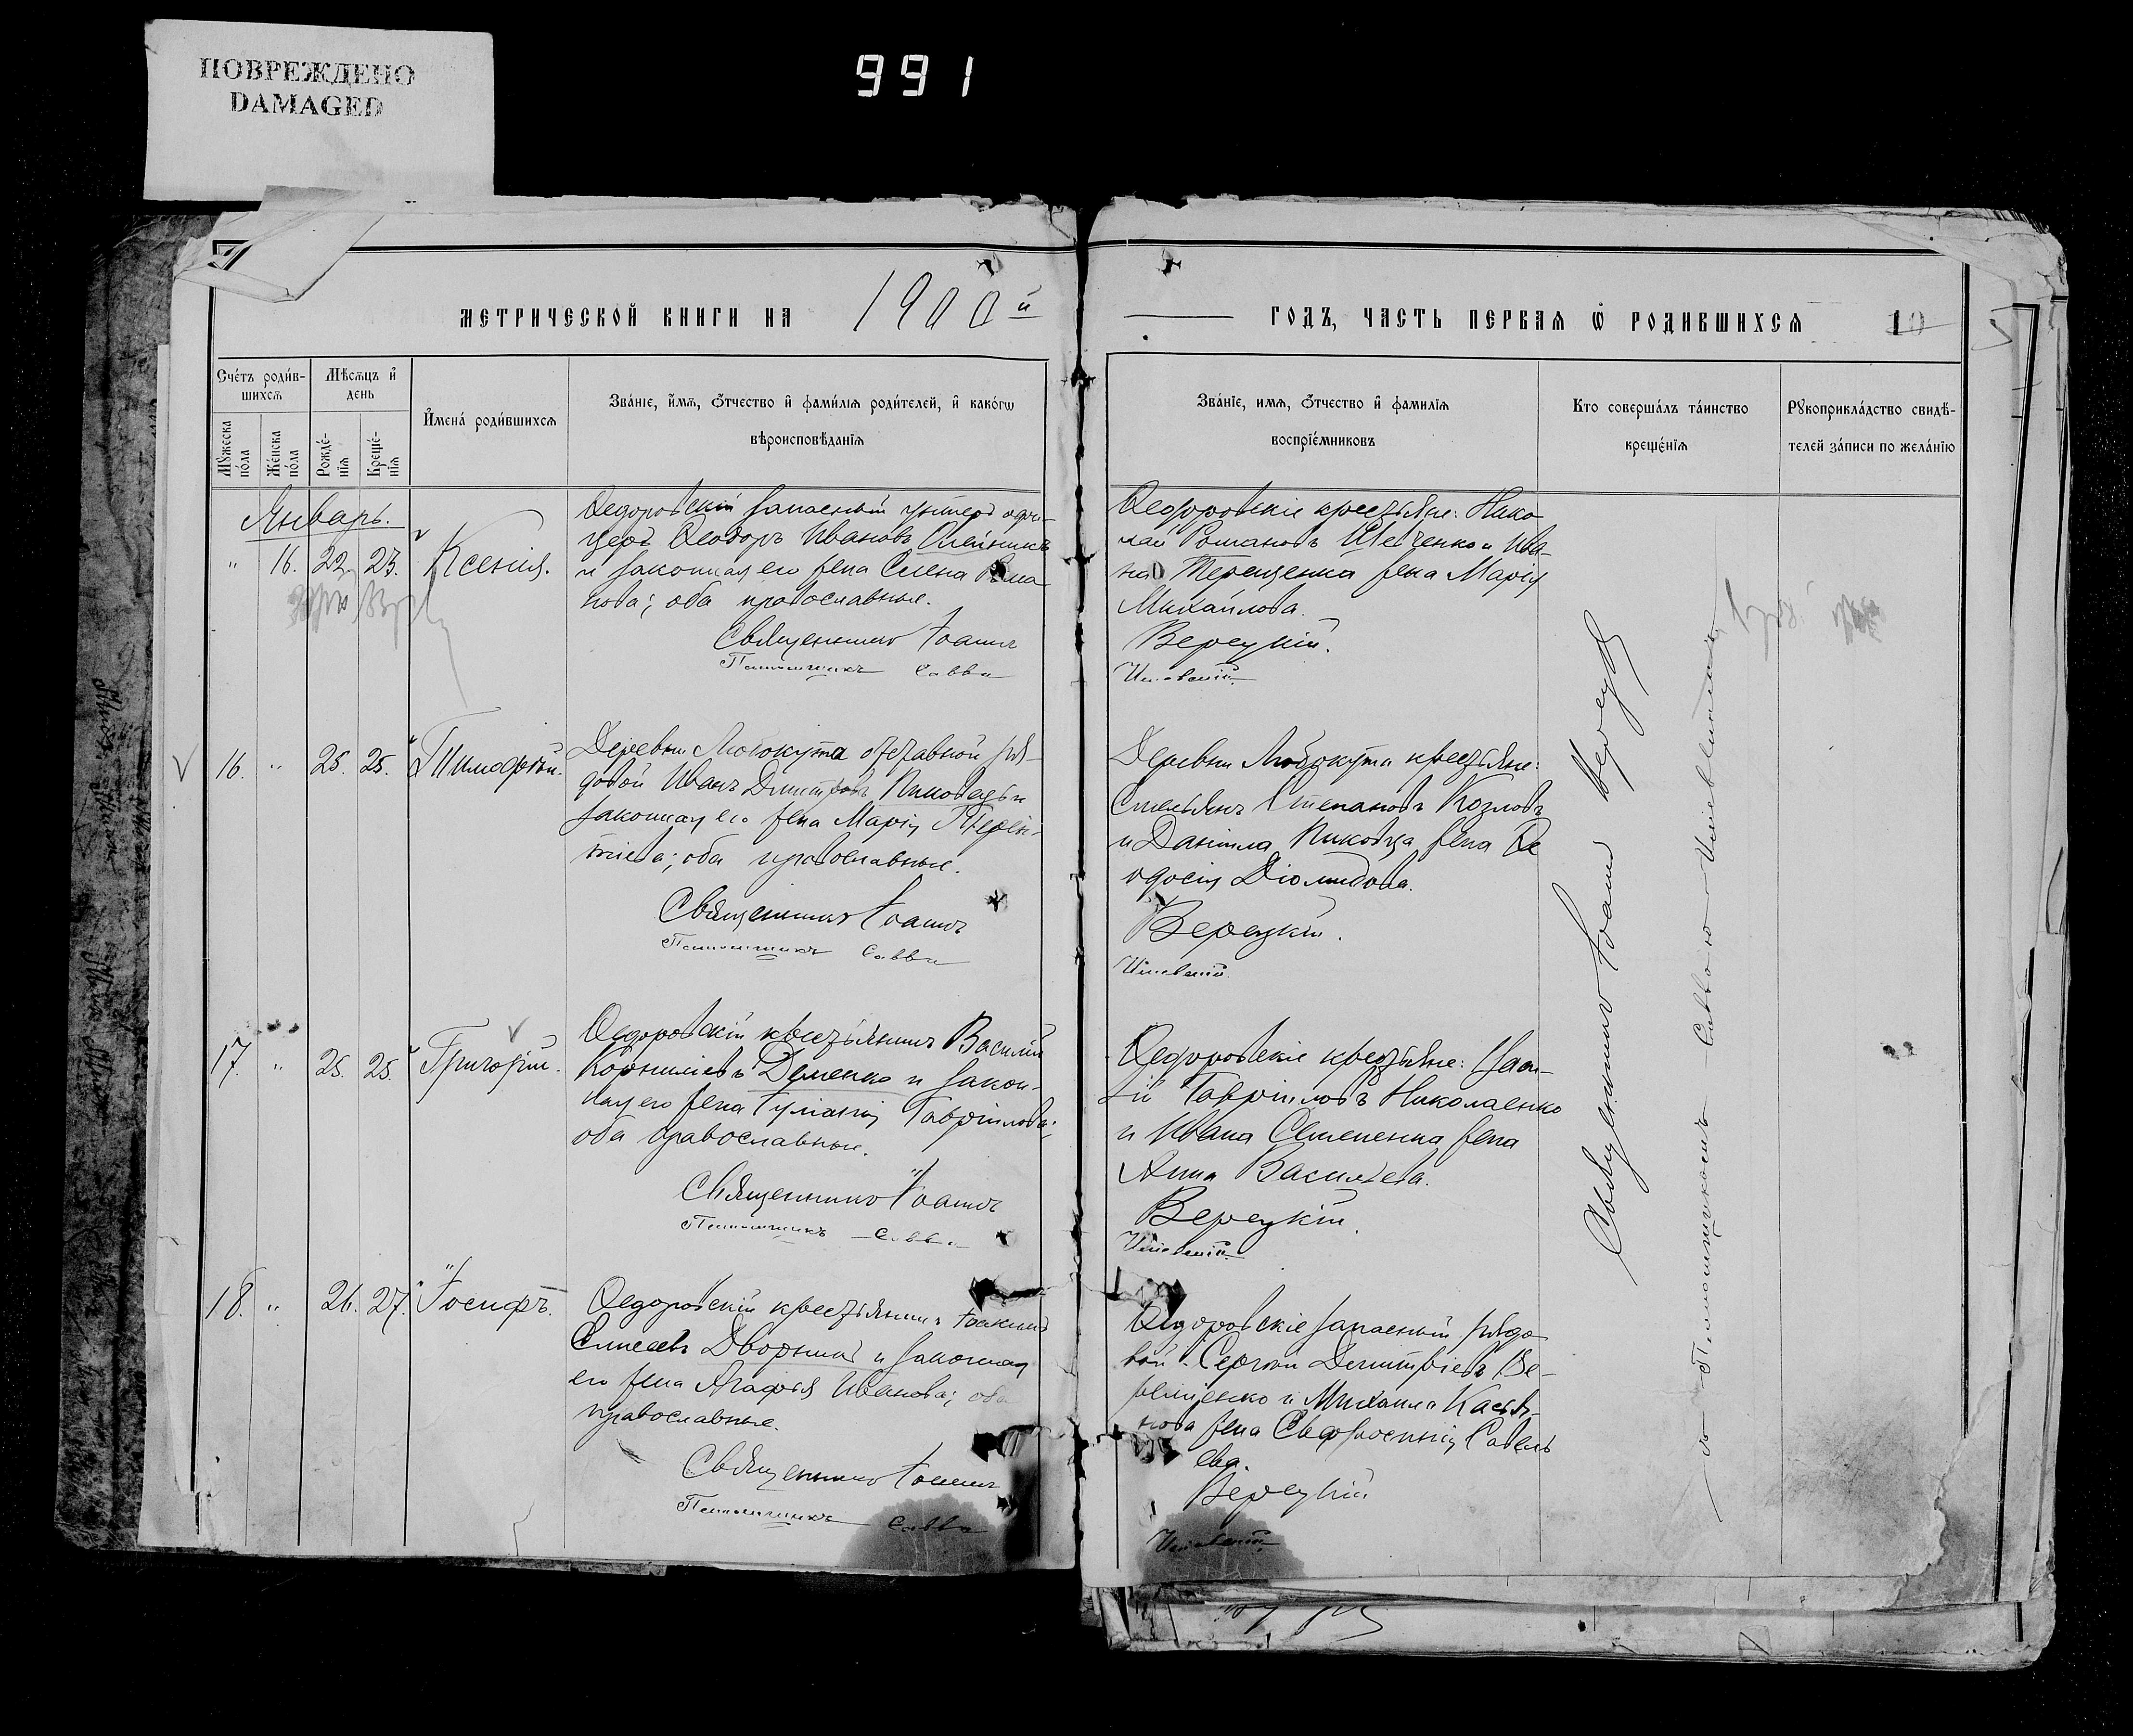 ПОВРЕЖДЕНО
DAMAGED
991
МЕТРИЧЕСКОЙ КНИГИ НА 1900й
ГОДЪ, ЧАСТЬ ПЕРВАЯ Ѿ РОДИВШИХСѦ 10
Сче́тъ роди́в-
шихсѧ
Мѣсѧцъ и҆
день
Мꙋ́жеска
по́ла
Же́нска
по́ла
Рожде́-
нїѧ
Креще́-
нїѧ
И҆мена̀ роди́вшихсѧ
Зва́нїе, и҆́мѧ, ѻ҆́тчество и҆ фами́лїѧ роди́телей, и҆ како́гѡ
вѣроисповѣ́данїѧ
Зва́нїе, имѧ, ѻ҆́тчество и҆ фамилїѧ
воспрїе́мниковъ
Кто соверша́лъ та́инство
креще́нїѧ
Рꙋкоприкла́дство свидѣ́-
телей за́писи по жела́нїю
Январь.
" 16. 22. 23. Ксенія.
Ѳедоровскій запасный унтеръ офи-
церъ Ѳеодоръ Ивановъ Олейникъ
и законная его жена Елена Рома
нова; оба православные.
Священникъ Іоаннъ
Псаломщикъ Савва
Ѳедоровскіе крестьяне: Нико
лай Романовъ Шевченко и Ива
на Терещенка жена Марія
Михайлова.
Верецкій.
16. " 25. 25. Тимофей.
Деревни Любокута отставной ря-
довой Иванъ Димитровъ Пиковецъ и
законная его жена Марія Терен-
тіева; оба православные.
Священникъ Іоаннъ
Псаломщикъ Савва
Деревни Любокута крестьяне:
Емельянъ Степановъ Козловъ
и Даніила Пиковца жена Ѳе
одосія Діомидова.
Верецкій.
17. " 25. 25. Григорій.
Ѳедоровскій крестьянинъ Василій
Корниліевъ Деменко и закон-
ная его жена Іуліанія Гавріилова;
оба православные.
Священникъ Іоаннъ
Псаломщикъ Савва
Ѳедоровскіе крестьяне:
Гавріиловъ Николаенко
и Ивана Семененка жена
Анна Васильева.
Верецкій.
18. " 26. 27. Іосифъ.
Ѳедоровскій крестьянинъ Іоакимъ
Елисеевъ Дворникъ и законная
его жена Агафія Иванова; оба
православные.
Священникъ Іоаннъ
Псаломщикъ Савва
Ѳедоровскіе запасный рядо
вой Сергій Димитріевъ Ве-
и Михаила Касья-
нова жена Евфросинія Савель
ева.
Верецкій
Священникъ Іоаннъ Верецкій
съ Псаломщикомъ Саввою